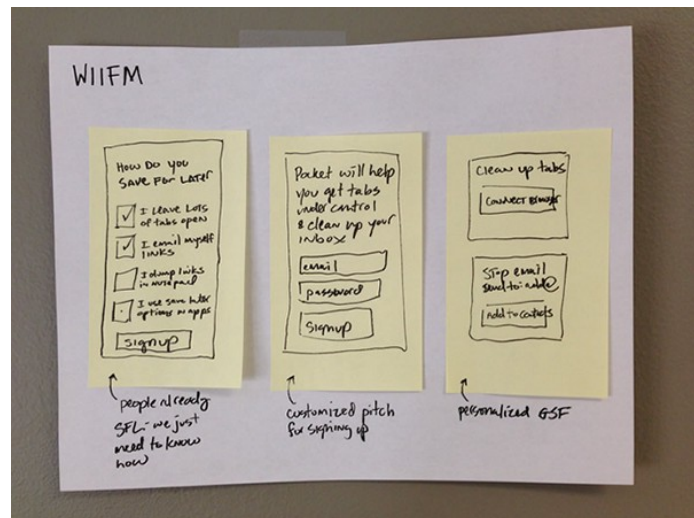 WIIFM
How Do you
SAVE FOR LATER
I LEAVE LOTS
of tabs open
I email myself
LINKS
I dump links
in notepad
I use save later
options in apps
signup
people already
SFL - we just
need to know
how
Pocket will help
you get tabs
under control
& clean up your
inbox
email
password
signup
customized pitch
for signing up
Clean up tabs
CONNECT BROWSER
Stop email
send-to: add@
Add to contacts
personalized GSF